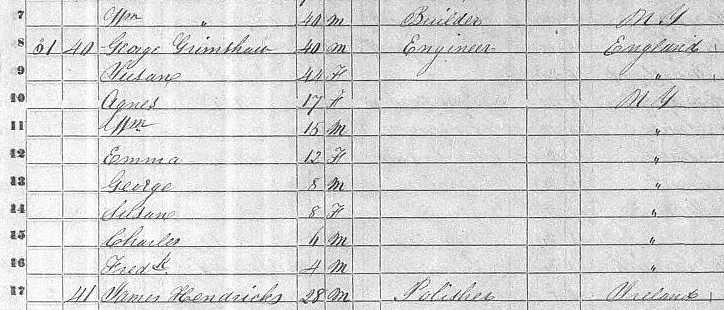 7 Wm " 40 M Builder N Y
8 61 40 George Grimshaw 40 M Engineer England
9 Susan 44 F "
10 Agnes 17 F N Y
11 Wm 15 M "
12 Emma 12 F "
13 George 8 M "
14 Susan 8 F "
15 Charles 6 M "
16 Fredk 4 M "
17 41 James Hendricks 28 M Polisher Ireland